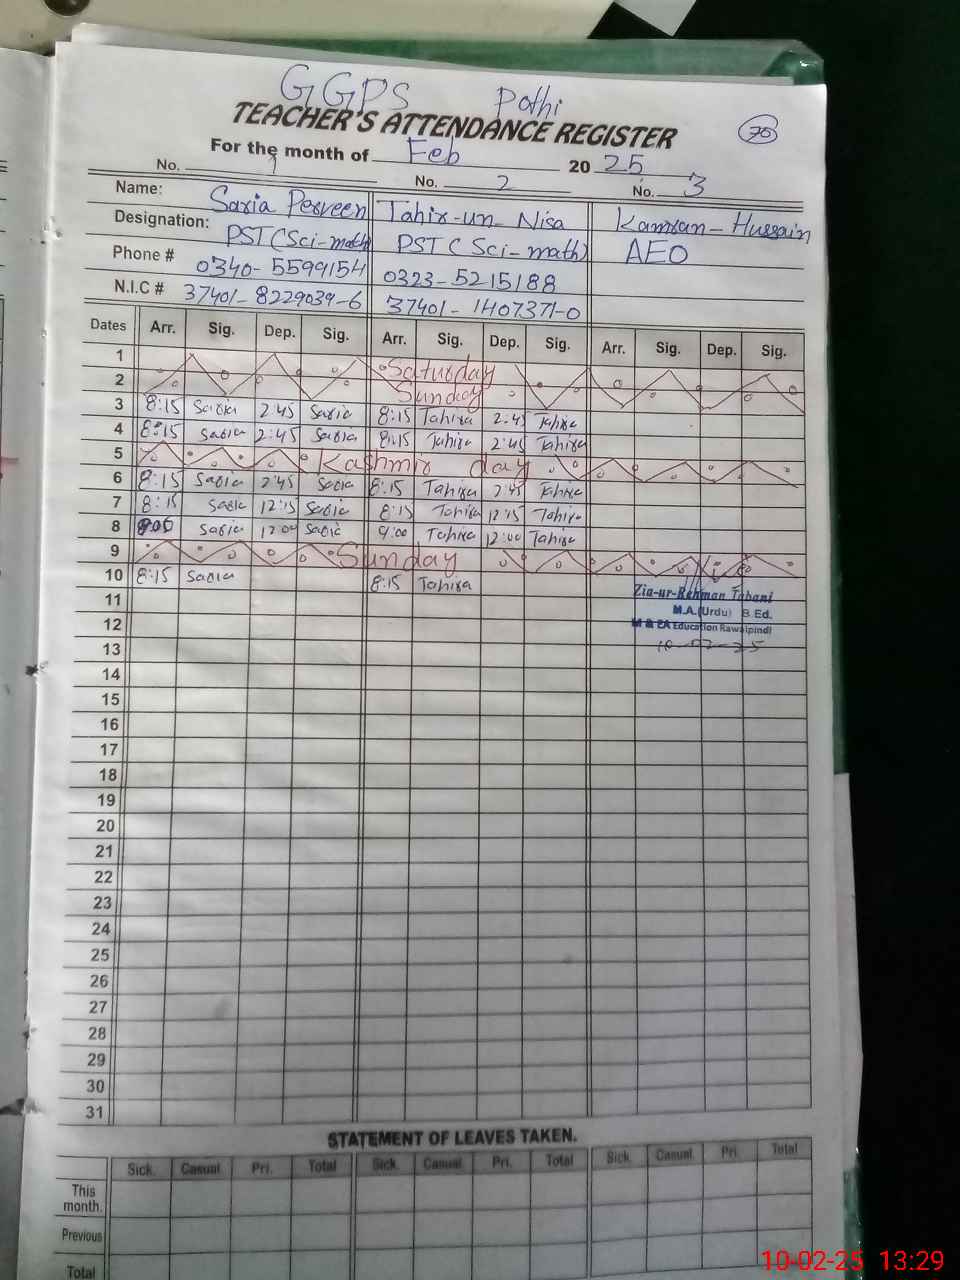 GGPS Pothi
TEACHER'S ATTENDANCE REGISTER
70
For the month of Feb 20 25
No. 1 No. 2 No. 3
Name: Saria Perveen Tahir-un-Nisa Kamran-Hussain
Designation: PST (Sci-math) PST (Sci-math) AEO
Phone # 0340-5599154 0323-5215188
N.I.C # 37401-8229039-6 37401-1407371-0
Dates Arr. Sig. Dep. Sig. Arr. Sig. Dep. Sig. Arr. Sig. Dep. Sig.
1 Saturday
2 Sunday
3 8:15 Saria 2:45 Saria 8:15 Tahira 2:45 Tahira
4 8:15 Saria 2:45 Saria 8:15 Tahira 2:45 Tahira
5 Kashmir day
6 8:15 Saria 2:45 Saria 8:15 Tahira 2:45 Tahira
7 8:15 Saria 12:15 Saria 8:15 Tahira 12:15 Tahira
8 Saria Saria 9:00 Tahira 12:00 Tahira
9 Sunday
10 8:15 Saria 8:15 Tahira
Zia-ur-Rehman Tabani
11 M.A.(Urdu) B.Ed.
12 M & EA Education Rawalpindi
13 10-02-25
14
15
16
17
18
19
20
21
22
23
24
25
26
27
28
29
30
31
STATEMENT OF LEAVES TAKEN.
Sick. Casual Pri. Total Sick. Casual Pri. Total Sick. Casual Pri. Total
This month.
Previous
Total
10-02-25 13:29